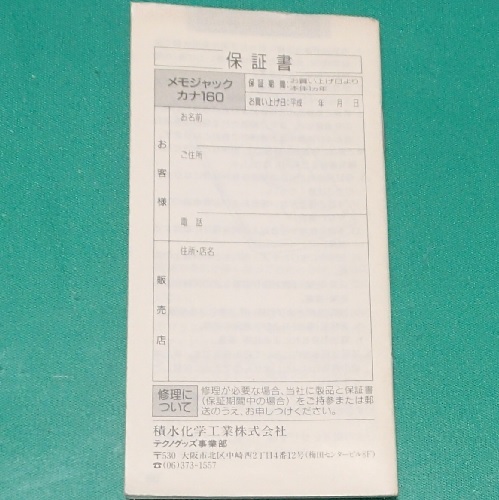 保証書
メモジャック
カナ160
保証期間:お買い上げ日より
本体1ヵ年
お買い上げ日:平成　年　月　日
お客様
お名前
ご住所
電話
販売店
住所・店名
修理に
ついて
修理が必要な場合、当社に製品と保証書
(保証期間中の場合)をご持参または郵
送のうえ、お申しつけください。
積水化学工業株式会社
テクノグッズ事業部
〒530 大阪市北区中崎西2丁目4番12号(梅田センタービル1F)
☎(06)373-1557